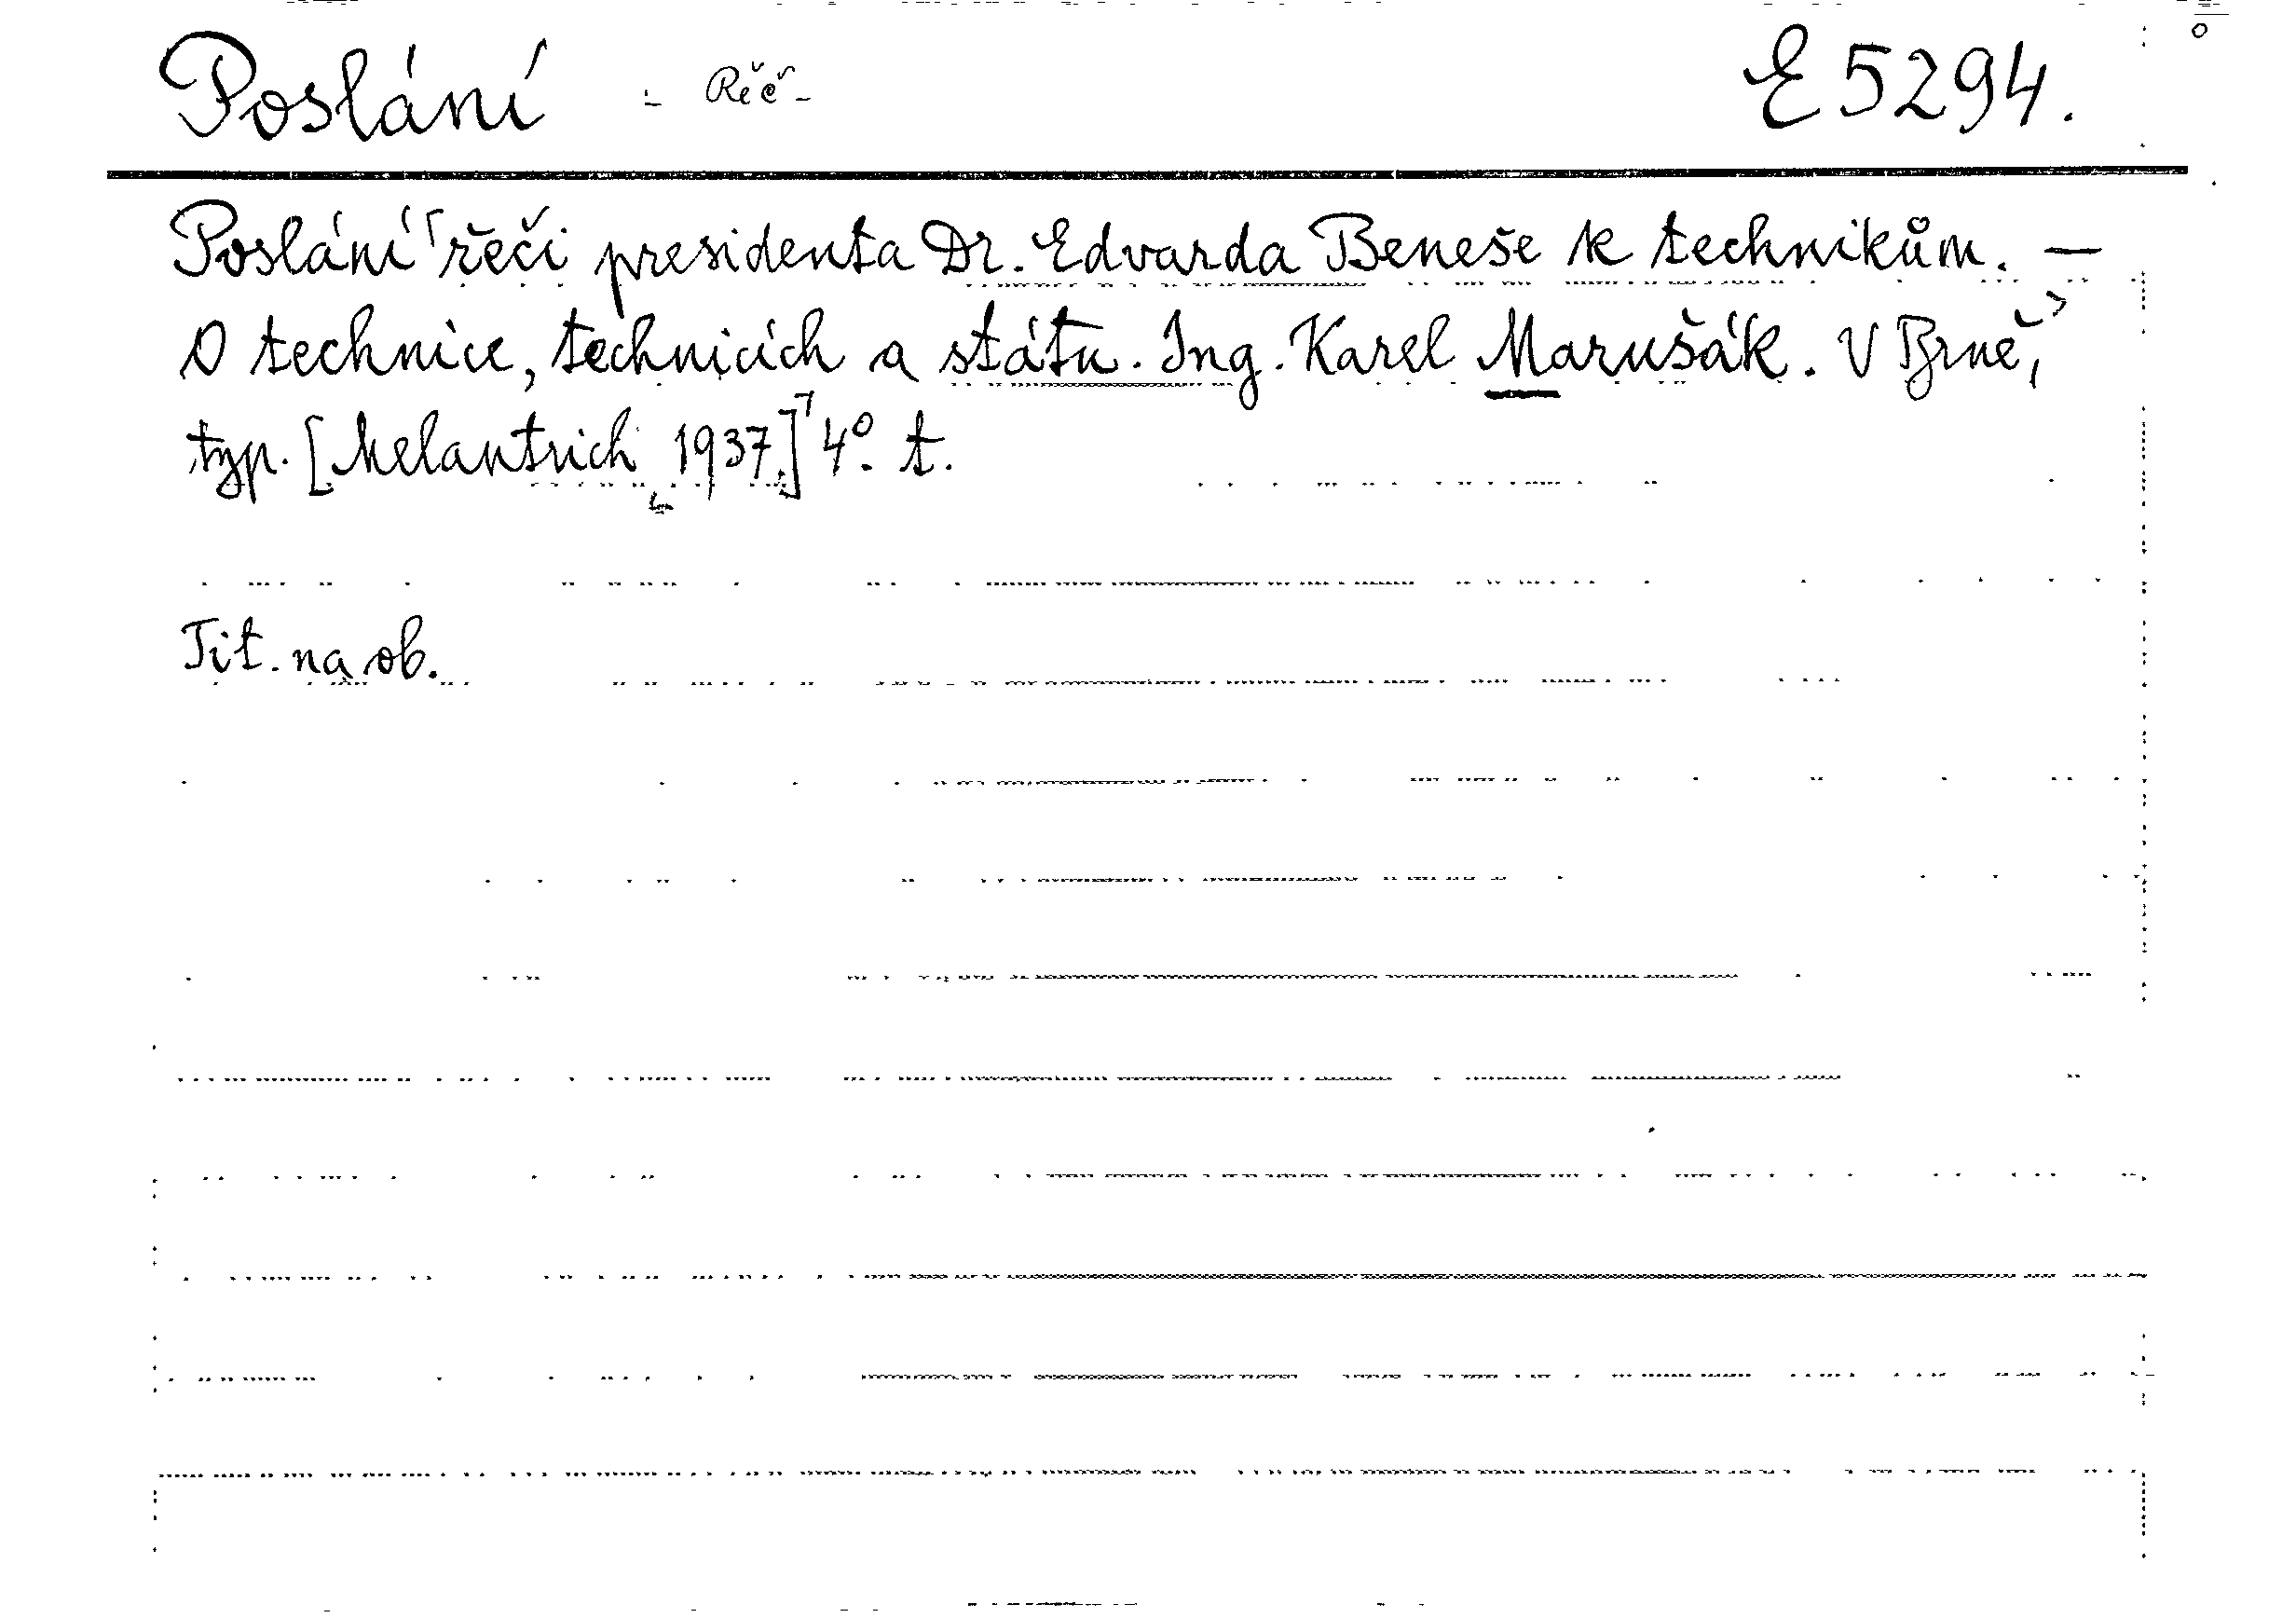 Poslání - Řeč - E 5294.
Poslání řeči presidenta Dr. Edvarda Beneše k technikům. —
O technice, technicích a státu. Ing. Karel Marušák. V Brně,
typ. [Melantrich 1937.] 4°. t.
Tit. na ob.